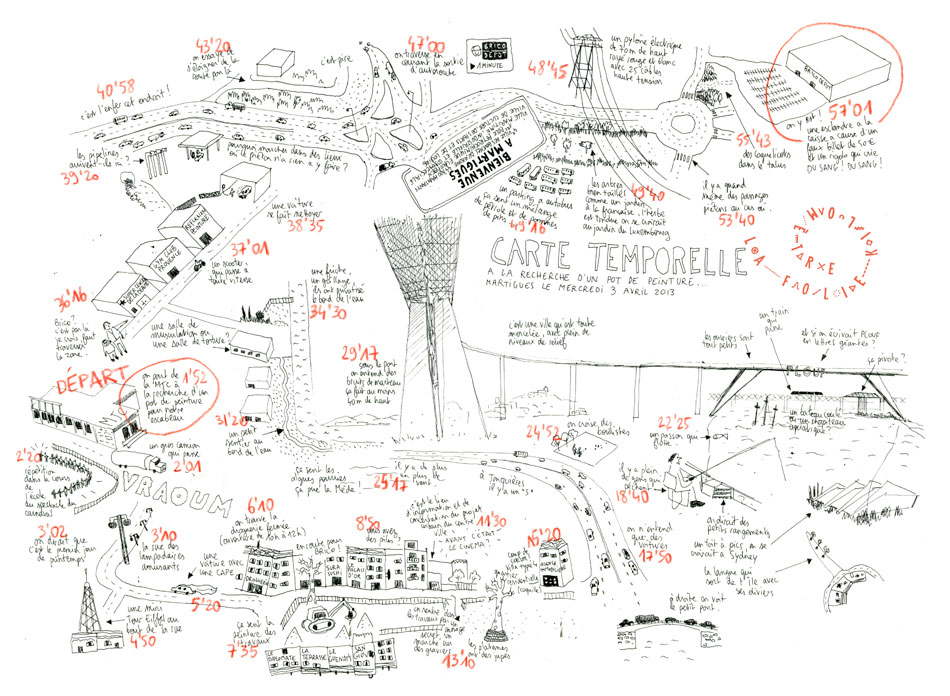 CARTE TEMPORELLE
A LA RECHERCHE D'UN POT DE PEINTURE...
MARTIGUES LE MERCREDI 3 AVRIL 2013
DÉPART
1'52
on part de
la MJC à
la recherche d'un
pot de peinture
pour notre
escabeau
un gros camion
qui passe
2'01
VRAOUM
2'20
répétition
dans la cour
de l'école
du spectacle du
3'02
on dirait que
c'est le premier jour
de printemps
3'10
la rue des
lampadaires
amusants
4'50
une mini
tour Eiffel au
bout de la rue
5'20
une
voiture avec
une CAPE
6'10
on trouve la
droguerie fermée
DROGUERIE
en route pour
BRICO !
7'35
ça sent la
peinture des
travaux
LE DIPLOMATE
LA TERRASSE
LE GRENAT
8'50
11'30
c'est le lieu
d'information et de
concertation du projet
urbain du centre
ville
AVANT C'ÉTAIT
LE CINEMA
13'10
on marche sur
des graviers
les platanes
ont des pipes
16'20
17'50
on n'entend
que des
voitures
à droite on voit
le petit pont
18'40
il y a plein
de gens qui
pêchent
on dirait des
petits rangements
un toit à pics, on se
croirait à
Sydney
la langue qui
sort de l'île avec
ses diviers
22'25
un poisson qui
flotte
24'52
on croise des
boulistes
à Jonquières
il y a un "S"
25'17
il y a de plus
en plus de
vent
ça sent les
algues pourries
ça pue la Mède !
29'17
sous le pont
on entend des
bruits de marteau
ça fait au moins
40 m de haut
31'20
un petit
sentier au
bord de l'eau
une salle de
musculation ou
une salle de torture
34'30
une friche,
le bord de l'eau
36'16
Brico ?
c'est par là
je crois, faut
traverser
la zone
37'01
un scooter
qui passe à
toute vitesse
GYM CLUB
PROVENCE
38'35
une voiture
se fait nettoyer
39'20
les pipelines
arrivent-ils ici ?
pourquoi marcher dans des lieux
où le piéton n'a rien à faire ?
40'58
c'est l'enfer cet endroit !
43'20
on essaye de
s'éloigner de la
route par là
c'est pire
47'00
on traverse en
courant la sortie
d'autoroute
BRICO
DEPOT
1 MINUTE
BIENVENUE
A MARTIGUES
48'45
un pylône électrique
de 70 m de haut
rayé rouge et blanc
avec 25 câbles
haute tension
49'16
un parking à autobus
ça sent un mélange
de pétrole et de pommes
de pins
49'40
les arbres
bien taillés
comme un jardin
à la française, l'herbe
est tondue on se croirait
au jardin du Luxembourg
53'40
il y a quand
même des passages
piétons au cas où...
55'43
des coquelicots
dans le talus
57'01
on y est !
une esclandre à la
caisse à cause d'un
faux billet de 50 €
et un type qui crie
DU SANG ! DU SANG !
c'est une ville qui est toute
morcelée, avec plein de
niveaux de relief
les ouvriers sont
tout petits
un train
qui passe
et si on écrivait PLOUF
en lettres géantes ?
PLOUF
ça pivote ?